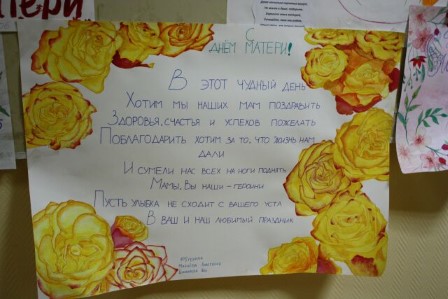 тери
С
ДНЁМ МАТЕРИ!
В ЭТОТ ЧУДНЫЙ ДЕНЬ
ХОТИМ МЫ НАШИХ МАМ ПОЗДРАВИТЬ
ЗДОРОВЬЯ, СЧАСТЬЯ И УСПЕХОВ ПОЖЕЛАТЬ
ПОБЛАГОДАРИТЬ ХОТИМ ЗА ТО, ЧТО ЖИЗНЬ НАМ
ДАЛИ
И СУМЕЛИ НАС ВСЕХ НА НОГИ ПОДНЯТЬ
МАМЫ, ВЫ НАШИ - ГЕРОИНИ
ПУСТЬ УЛЫБКА НЕ СХОДИТ С ВАШЕГО УСТА
В ВАШ И НАШ ЛЮБИМЫЙ ПРАЗДНИК